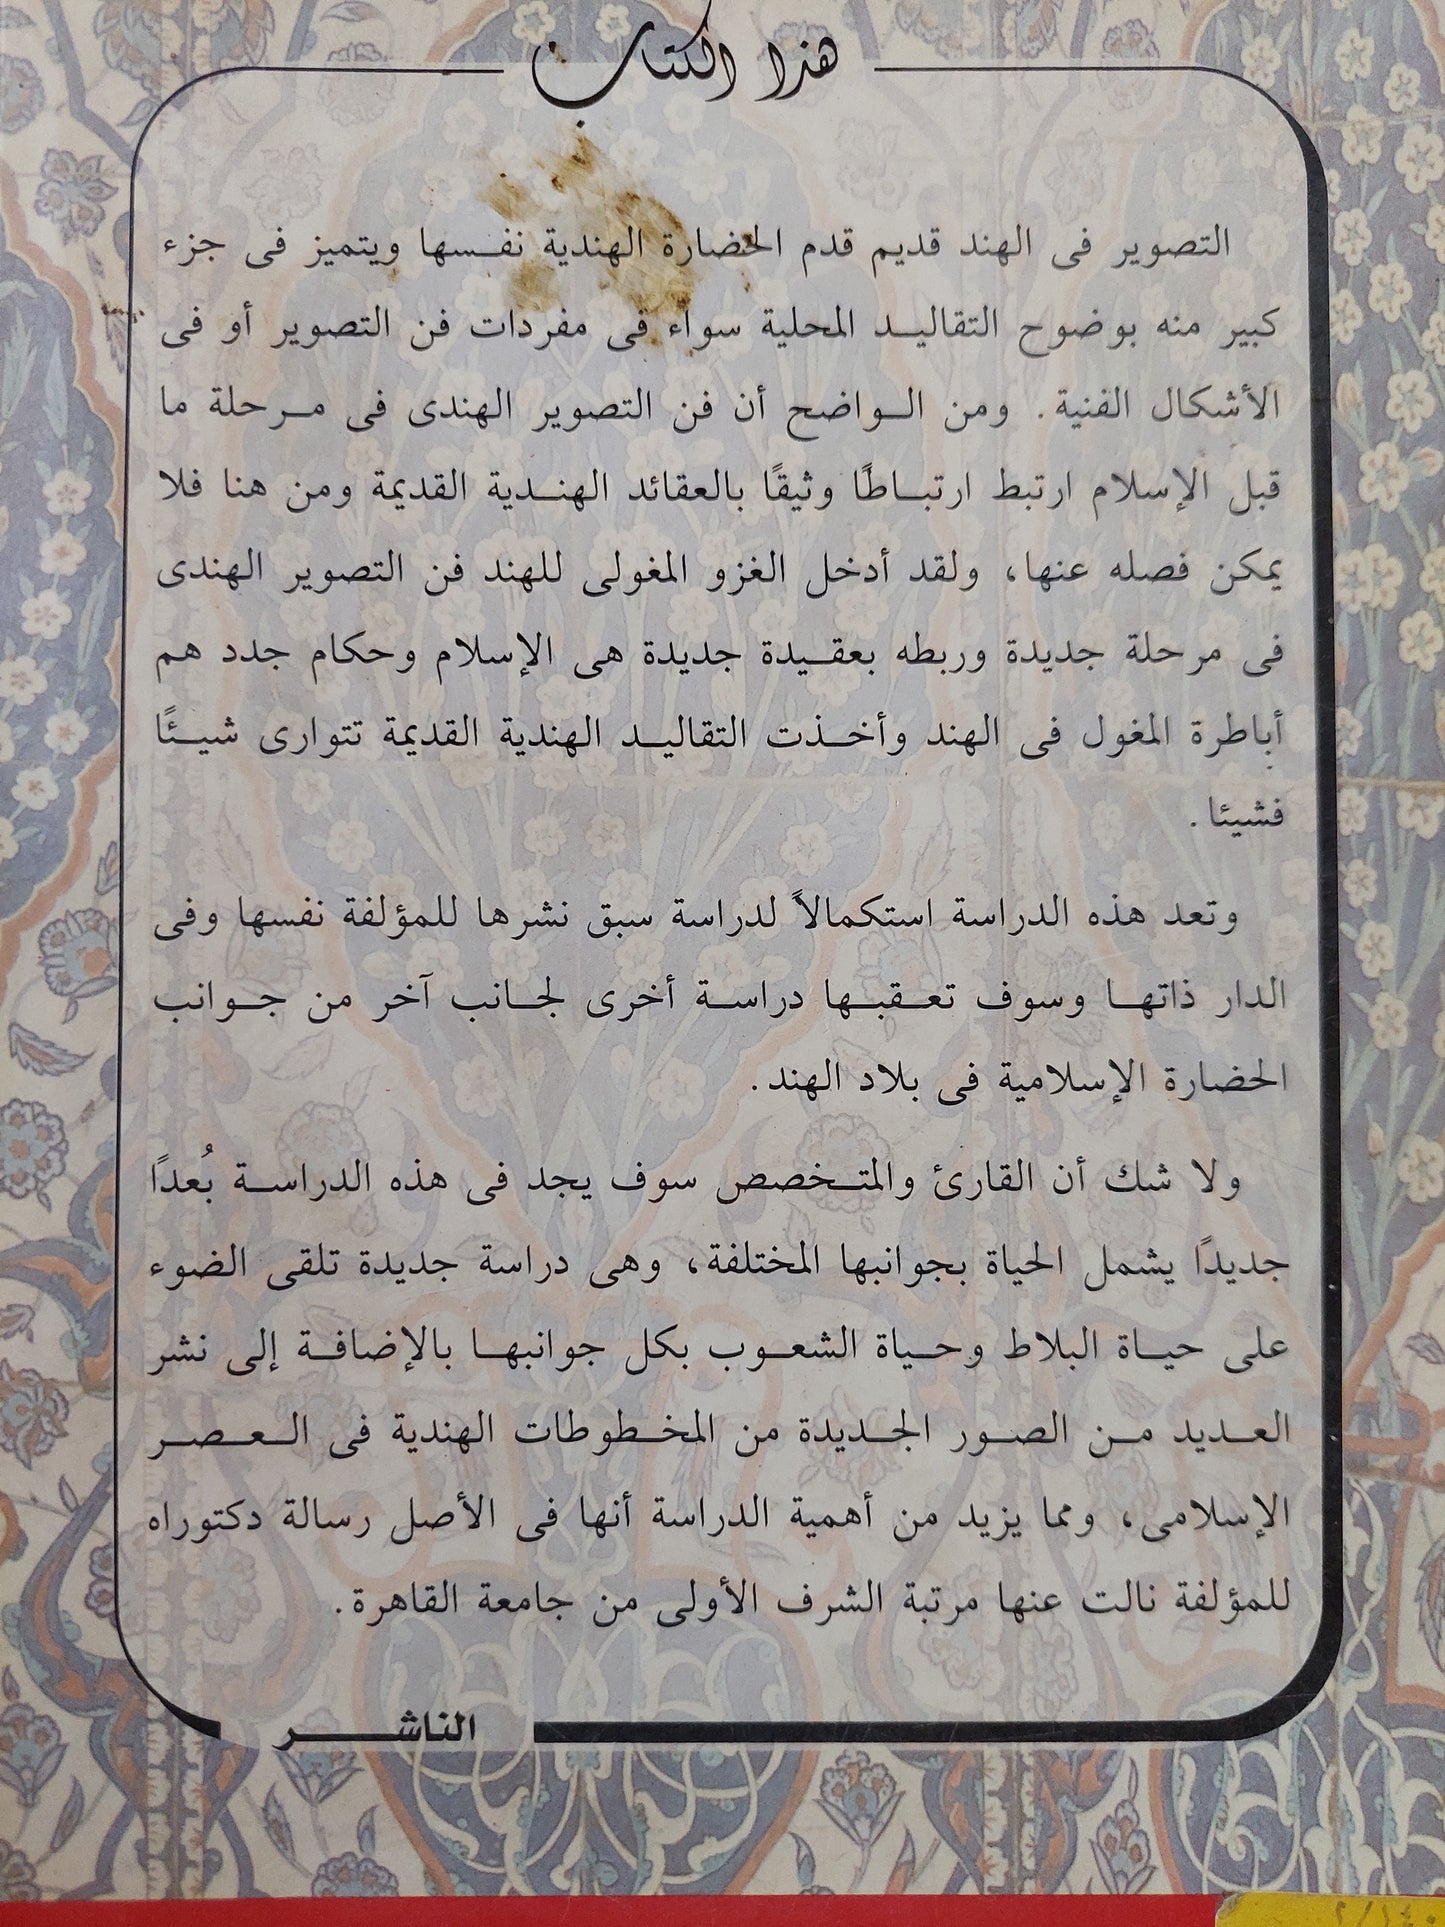 هذا الكتاب
التصوير فى الهند قديم قدم الحضارة الهندية نفسها ويتميز فى جزء
كبير منه بوضوح التقاليد المحلية سواء فى مفردات فن التصوير أو فى
الأشكال الفنية. ومن الواضح أن فن التصوير الهندى فى مرحلة ما
قبل الإسلام ارتبط ارتباطًا وثيقًا بالعقائد الهندية القديمة ومن هنا فلا
يمكن فصله عنها، ولقد أدخل الغزو المغولى للهند فن التصوير الهندى
فى مرحلة جديدة وربطه بعقيدة جديدة هى الإسلام وحكام جدد هم
أباطرة المغول فى الهند وأخذت التقاليد الهندية القديمة تتوارى شيئًا
فشيئا.
وتعد هذه الدراسة استكمالاً لدراسة سبق نشرها للمؤلفة نفسها وفى
الدار ذاتها وسوف تعقبها دراسة أخرى لجانب آخر من جوانب
الحضارة الإسلامية فى بلاد الهند.
ولا شك أن القارئ والمتخصص سوف يجد فى هذه الدراسة بُعدًا
جديدًا يشمل الحياة بجوانبها المختلفة، وهى دراسة جديدة تلقى الضوء
على حياة البلاط وحياة الشعوب بكل جوانبها بالإضافة إلى نشر
العديد من الصور الجديدة من المخطوطات الهندية فى العصر
الإسلامى، ومما يزيد من أهمية الدراسة أنها فى الأصل رسالة دكتوراه
للمؤلفة نالت عنها مرتبة الشرف الأولى من جامعة القاهرة.
الناشر